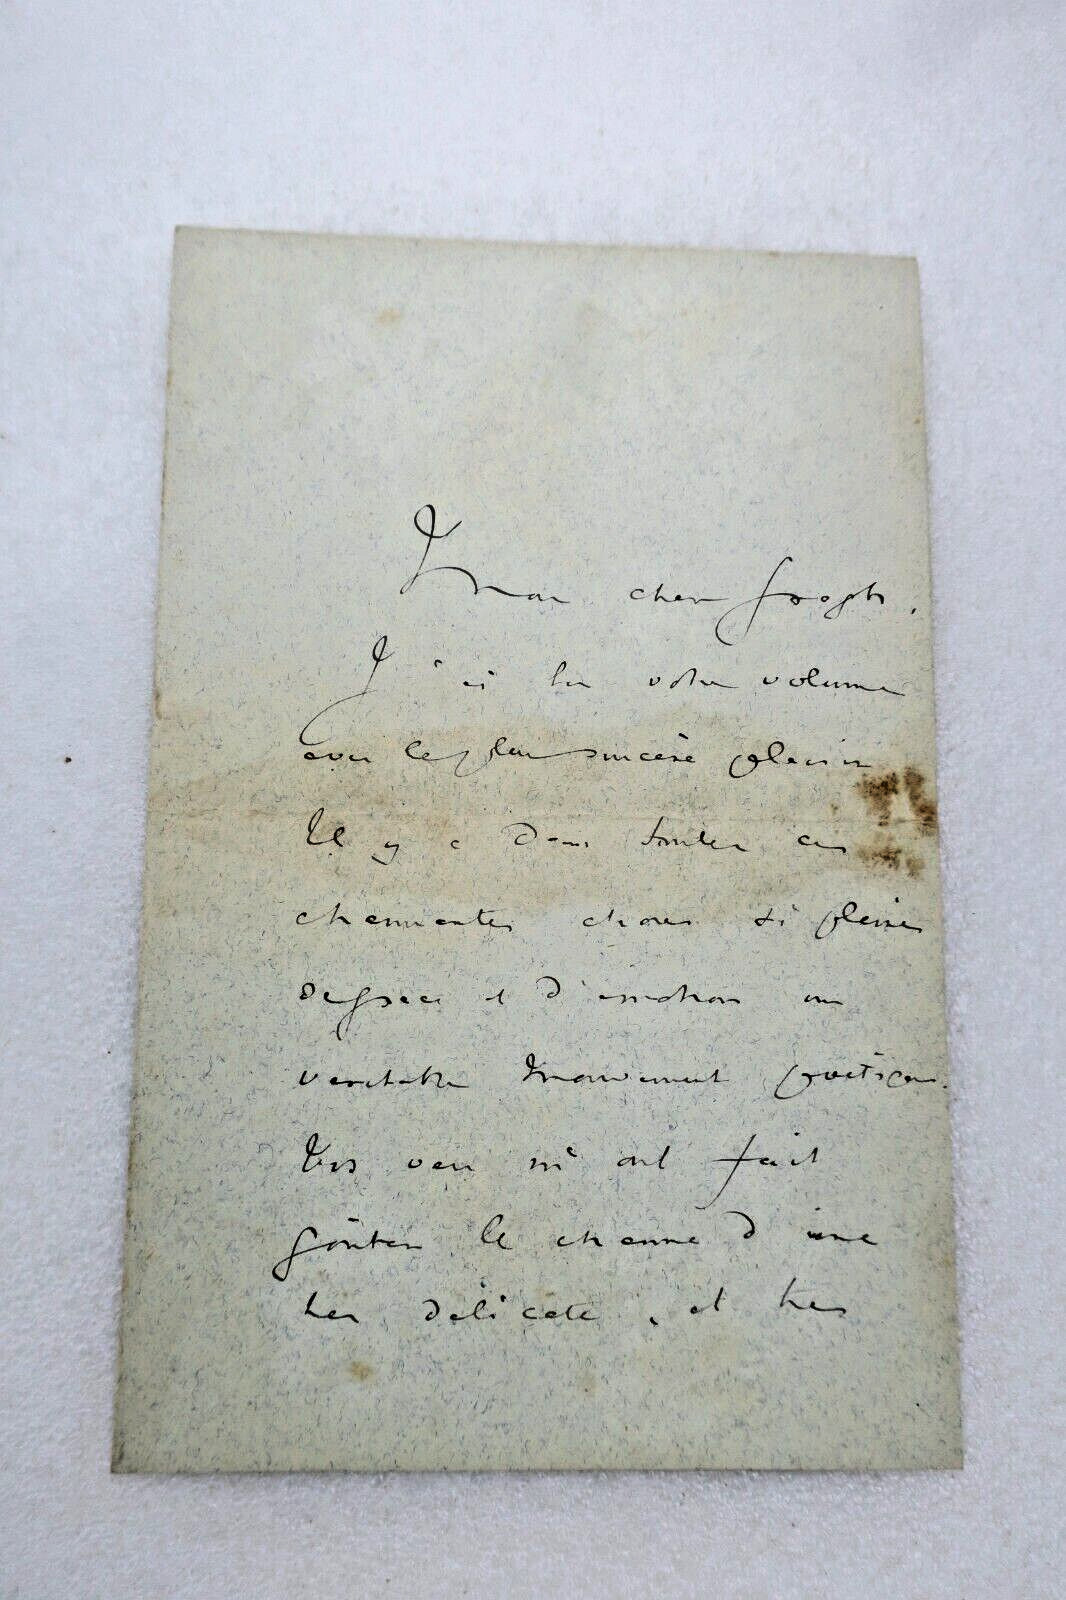 Mon cher
J'ai lu votre volume
avec le plus sincère plaisir
Il y a dans toutes ces
charmantes choses si pleines
de grace et d'émotion un
veritable mouvement poétique.
Vos vers m'ont fait
goûter le charme d'une
tres delicate, et tres